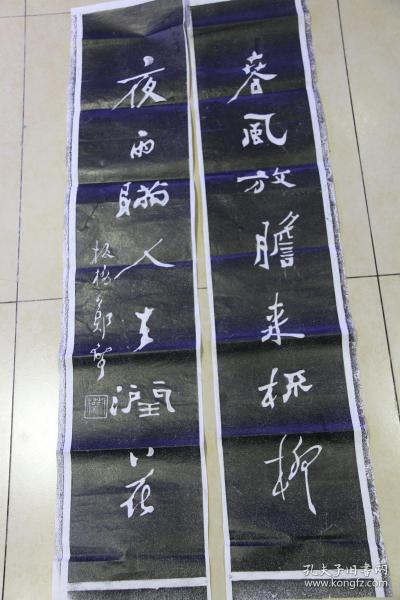 春风放胆来梳柳
夜雨瞒人去润花
板桥郑燮
孔夫子旧书网
www.kongfz.com